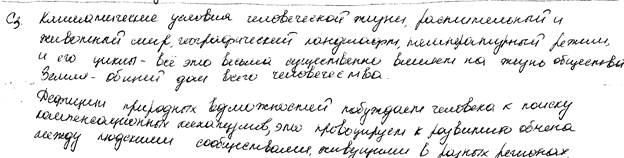 С3. Климатические условия человеческой жизни, растительный и
животный мир, географический ландшафт, температурный режим
и его циклы - всё это весьма существенно влияет на жизнь общества
Земля - общий дом всего человечества.
Дефицит природных возможностей побуждает человека к поиску
компенсационных механизмов, это провоцирует к развитию обмена
между людскими сообществами, живущими в разных регионах.